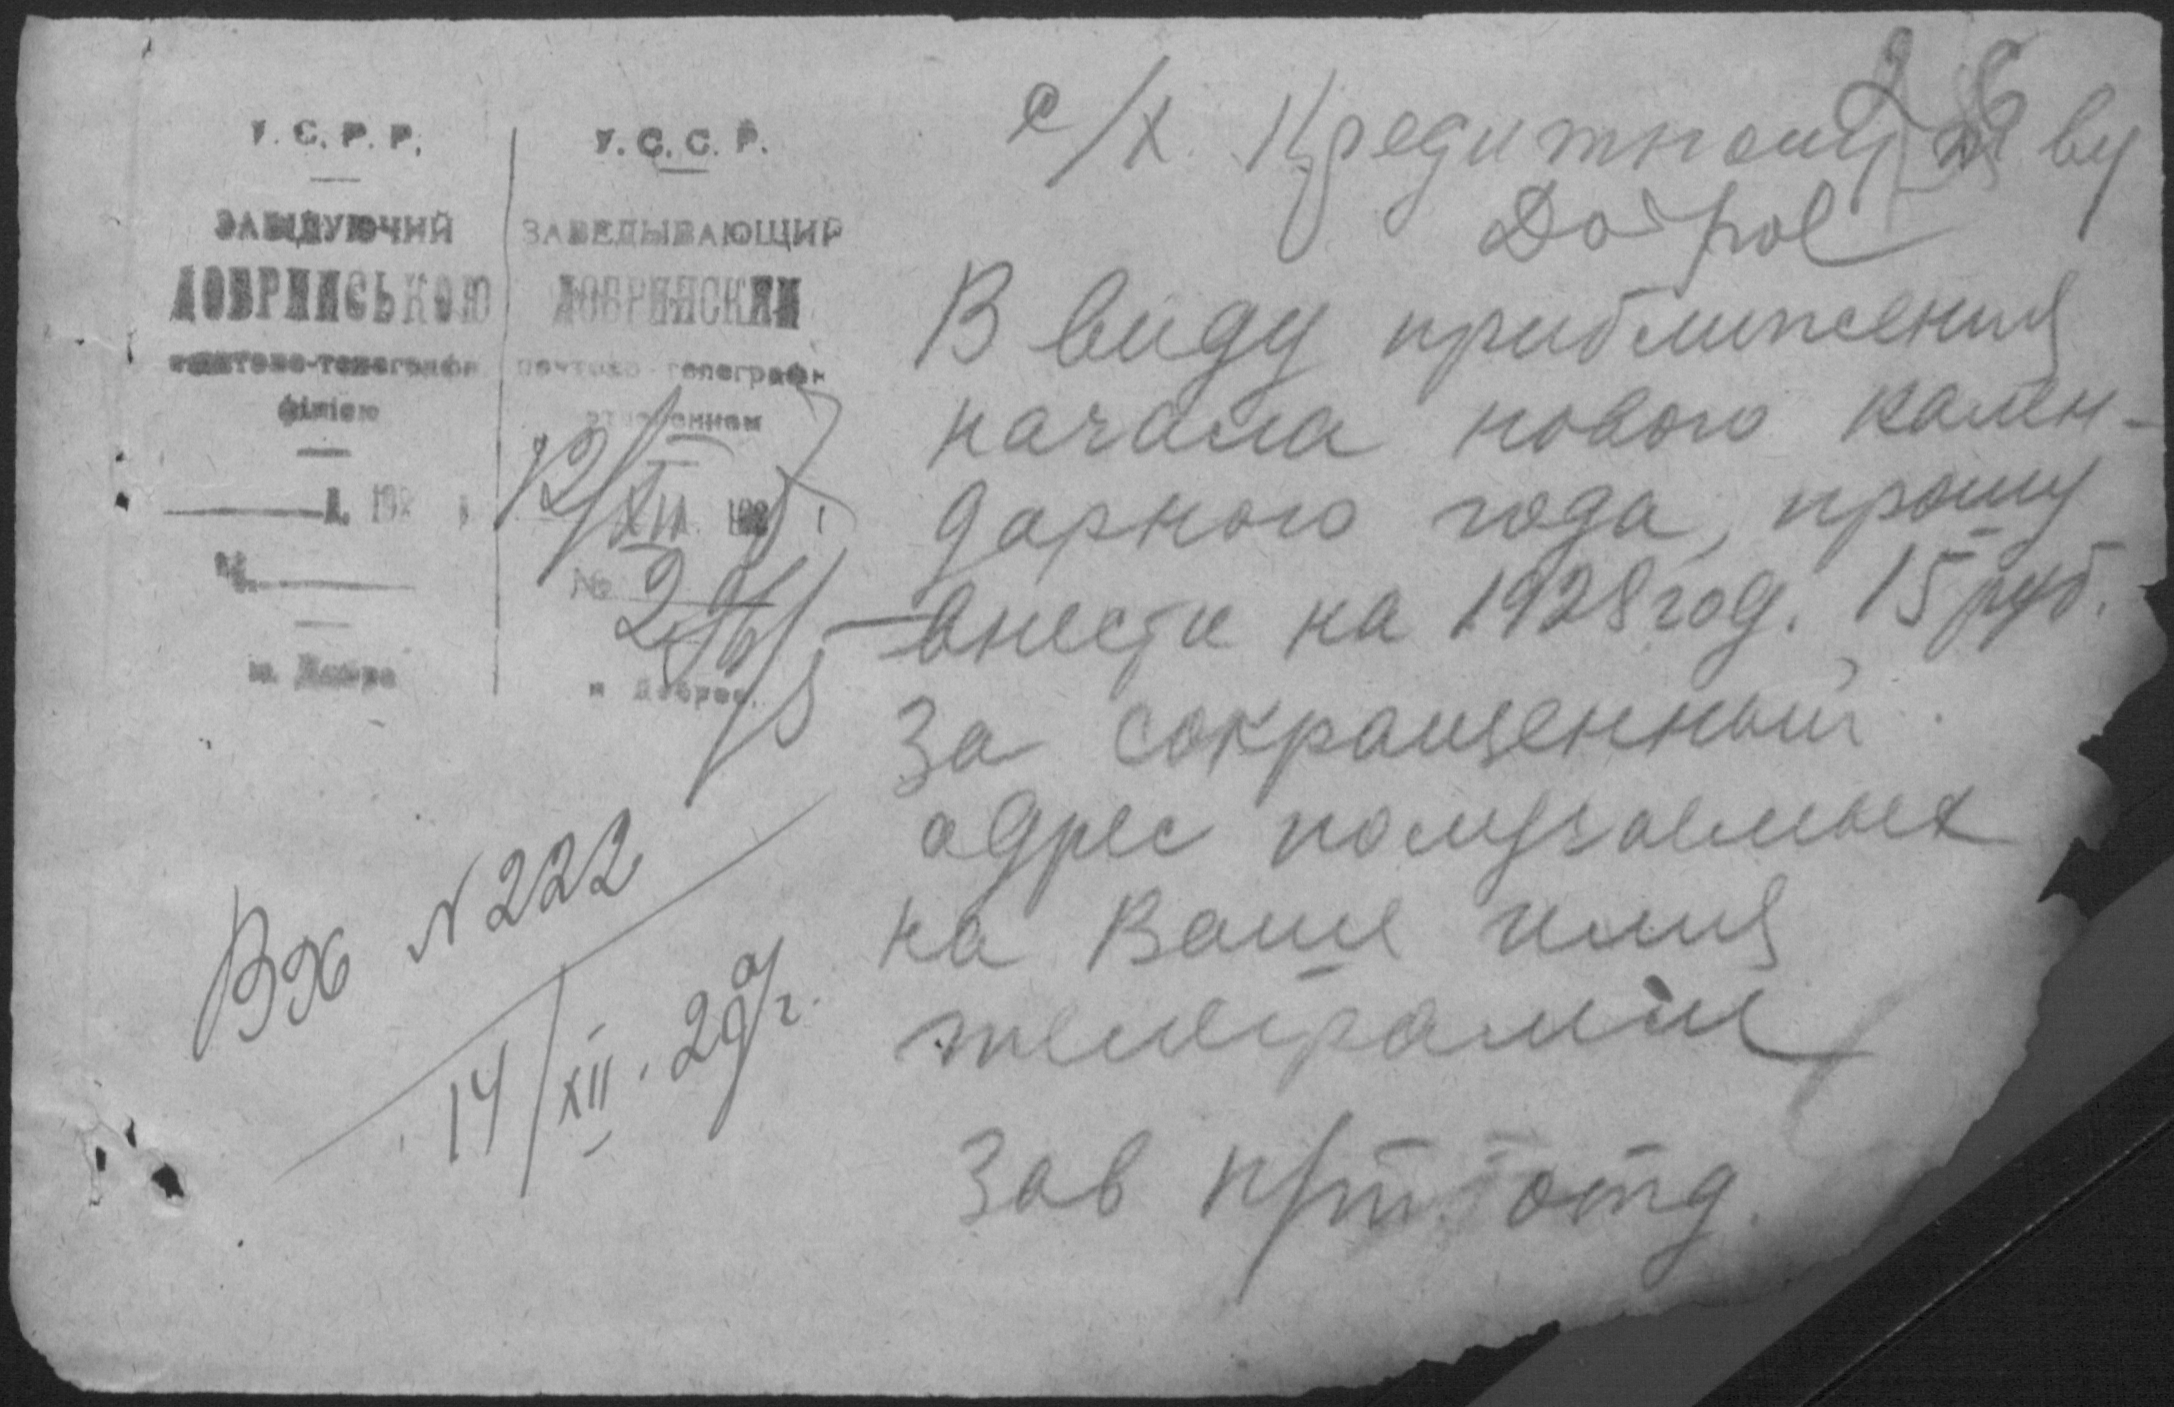 У. С. Р. Р.
ЗАВІДУЮЧИЙ
ДОБРИНСЬКОЮ
поштово-телеграфн
філією
Д. 192 р
м. Добра
У. С. С. Р.
ЗАВЕДЫВАЮЩИЙ
ДОБРИНСКИМ
почтово-телеграфн
отделением
12/XII 192
№
м Доброе.
26
с/х. Кредитному т ву
Доброе
В виду приближения
начала нового кален-
дарного года, прошу
внести на 1928 год. 15 руб.
За сокращенный
адрес получаемых
на Ваше имия
телеграмм
Зав п/т. отд.
Вх N 222
14/XII. 29 г.